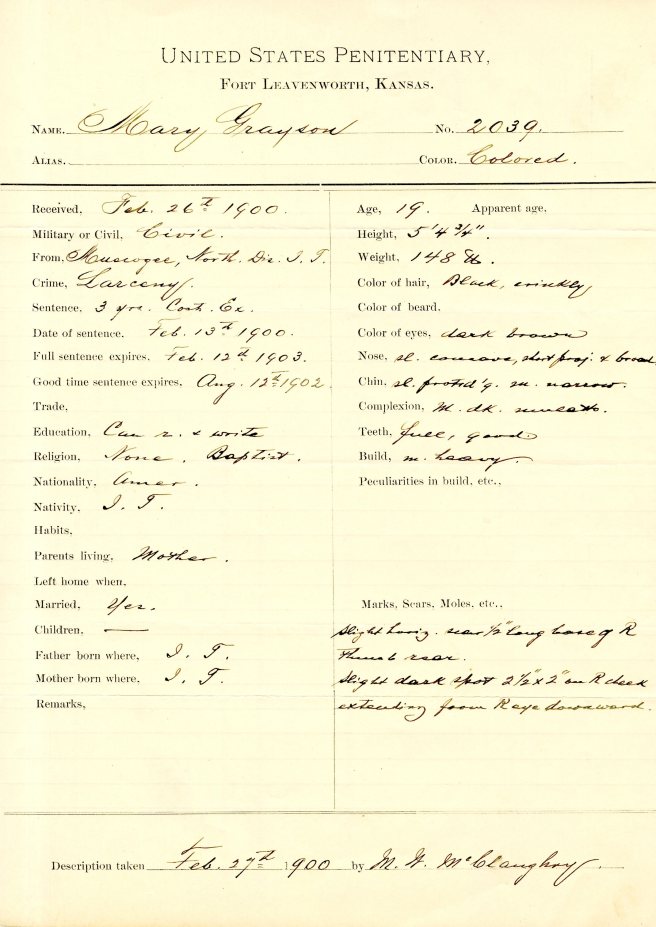 UNITED STATES PENITENTIARY,
FORT LEAVENWORTH, KANSAS.
NAME. Mary Grayson No. 2039.
ALIAS. COLOR. Colored.
Received, Feb. 26th 1900.
Military or Civil, Civil.
From, Muscogee, North. Dis. I. T.
Crime, Larceny.
Sentence, 3 yrs. Cost. Ex.
Date of sentence, Feb. 13th 1900.
Full sentence expires, Feb. 12th 1903.
Good time sentence expires, Aug. 12th 1902.
Trade,
Education, Can r. & write
Religion, None. Baptist.
Nationality, Amer.
Nativity, I. T.
Habits,
Parents living, Mother.
Left home when,
Married, Yes.
Children, —
Father born where, I. T.
Mother born where, I. T.
Remarks,
Age, 19. Apparent age,
Height, 5'4 3/4".
Weight, 148 lb.
Color of hair, Black, crinkley
Color of beard,
Color of eyes, dark brown
Nose, sl. concave, short proj. & broad
Chin, sl. protrd'g. m. narrow.
Complexion, M. dk. mulatto.
Teeth, full, good
Build, m. heavy.
Peculiarities in build, etc.,
Marks, Scars, Moles, etc.,
Slight horiz. scar 1/2" long base of R
thumb rear.
Slight dark spot 2 1/2" x 2" on R cheek
extending from R eye downward.
Description taken Feb. 27th 1900 by M. W. McClaughry.